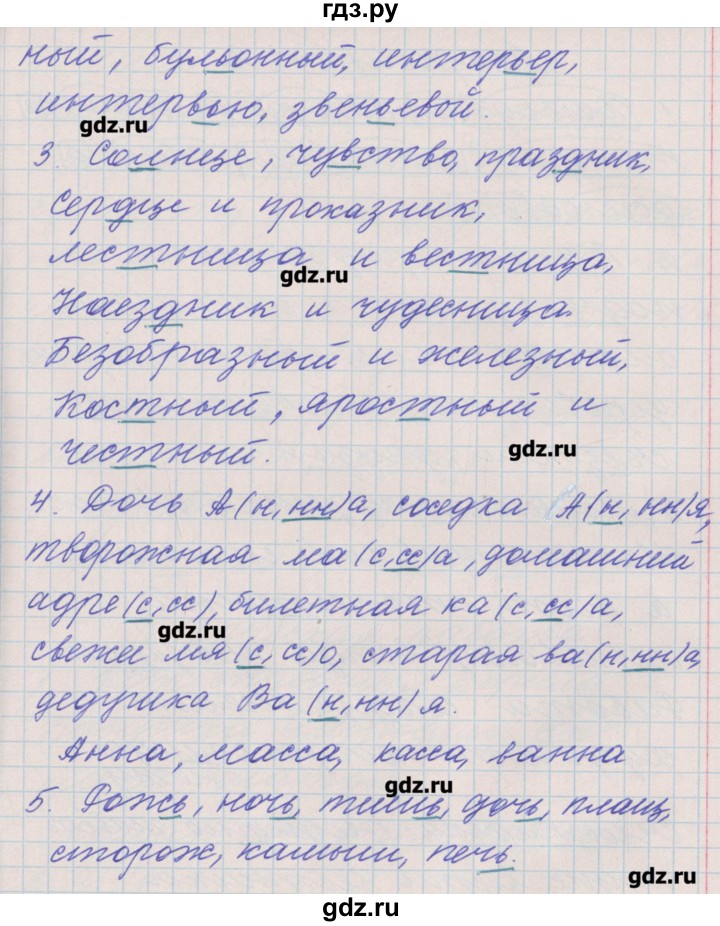 гдз.ру
ный, бульонный, интерьер,
интервью, звеньевой.
gdz.ru
3. Солнце, чувство, праздник,
Сердце и проказник,
лестница и вестница,
gdz.ru
Наездник и чудесница.
Безобразный и железный,
Костный, яростный и
честный.
gdz.ru
4. Дочь А(н, нн)а, соседка А(н, нн)я,
творожная ма(с, сс)а, домашний
адре(с, сс), билетная ка(с, сс)а,
gdz.ru
свежее мя(с, сс)о, старая ва(н, нн)а,
дедушка Ва(н, нн)я.
Анна, масса, касса, ванна
gdz.ru
5. Рожь, ночь, тишь, дочь, плащ,
сторож, камыш, печь.
gdz.ru
gdz.ru